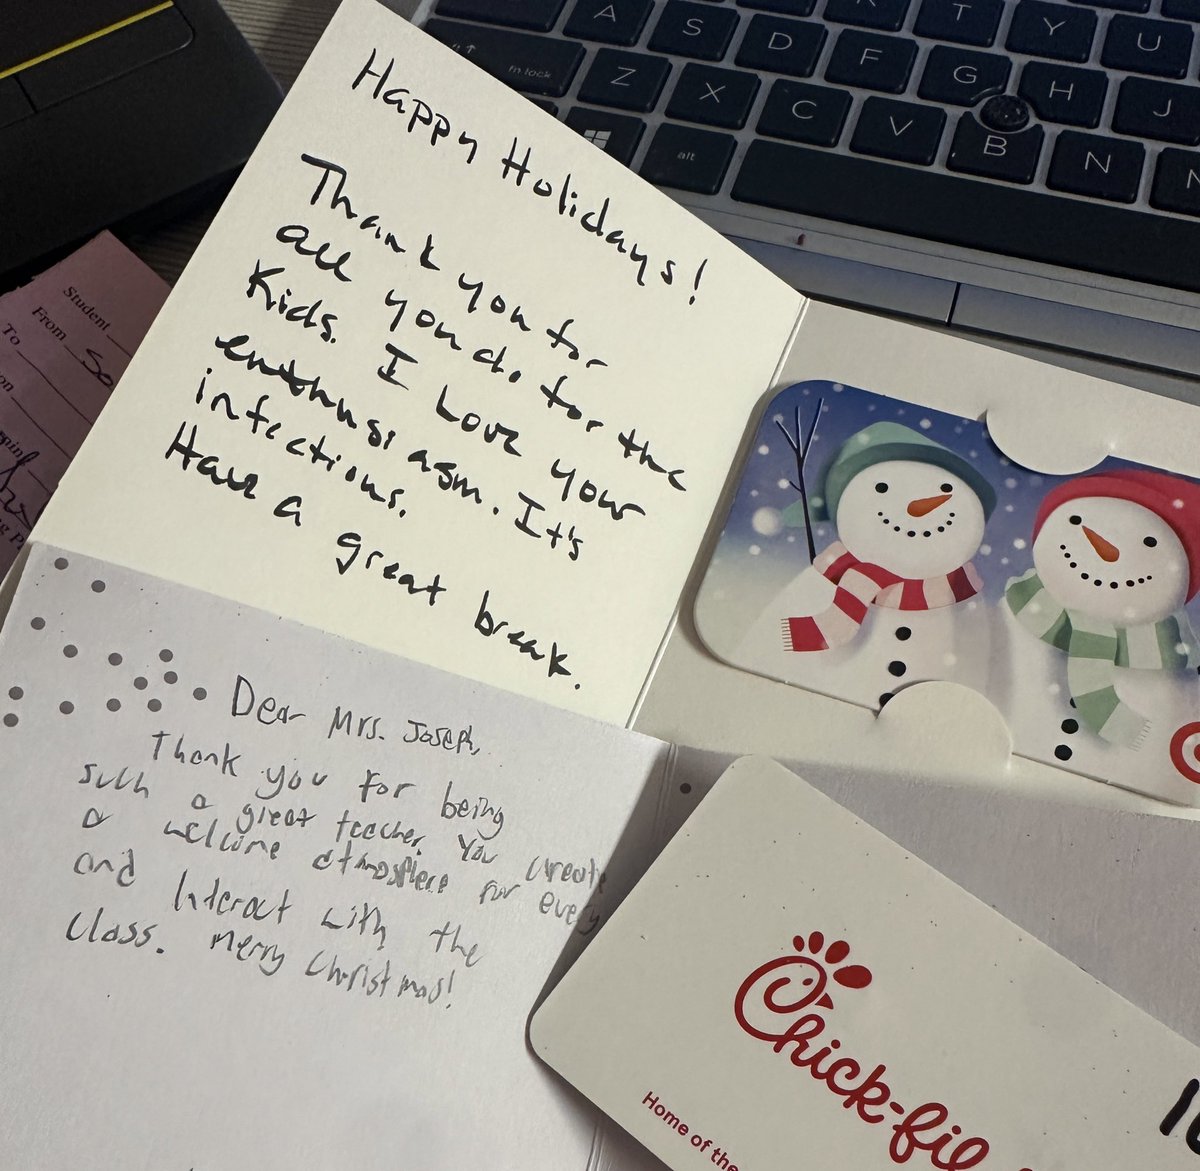 Happy Holidays!
Thank you for
all you do for the
Kids. I Love your
enthusiasm. It's
infectious.
Have a great break.
Dear Mrs. Joseph,
Thank you for being
such a great teacher. You create
a welcome atmosphere for every
and Interact with the
class. Merry Christmas!
Chick-fil
Home of the
Student
From
To
A S D F G H J
T Y U
fn lock Z X C V B N
alt